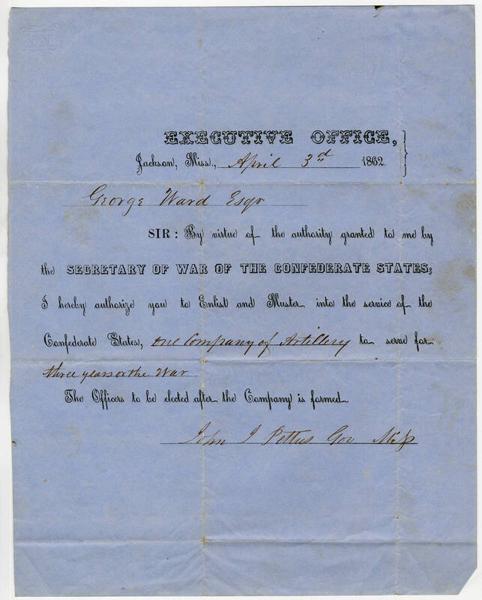 EXECUTIVE OFFICE,
Jackson, Miss., April 3rd 1862
George Ward Esqr
SIR: By virtue of the authority granted to me by
the SECRETARY OF WAR OF THE CONFEDERATE STATES;
I hereby authorize you to Enlist and Muster into the service of the
Confederate States, one Company of Artillery to serve for
three years or the War
The Officers to be elected after the Company is formed
John J Pettus Gov Miss